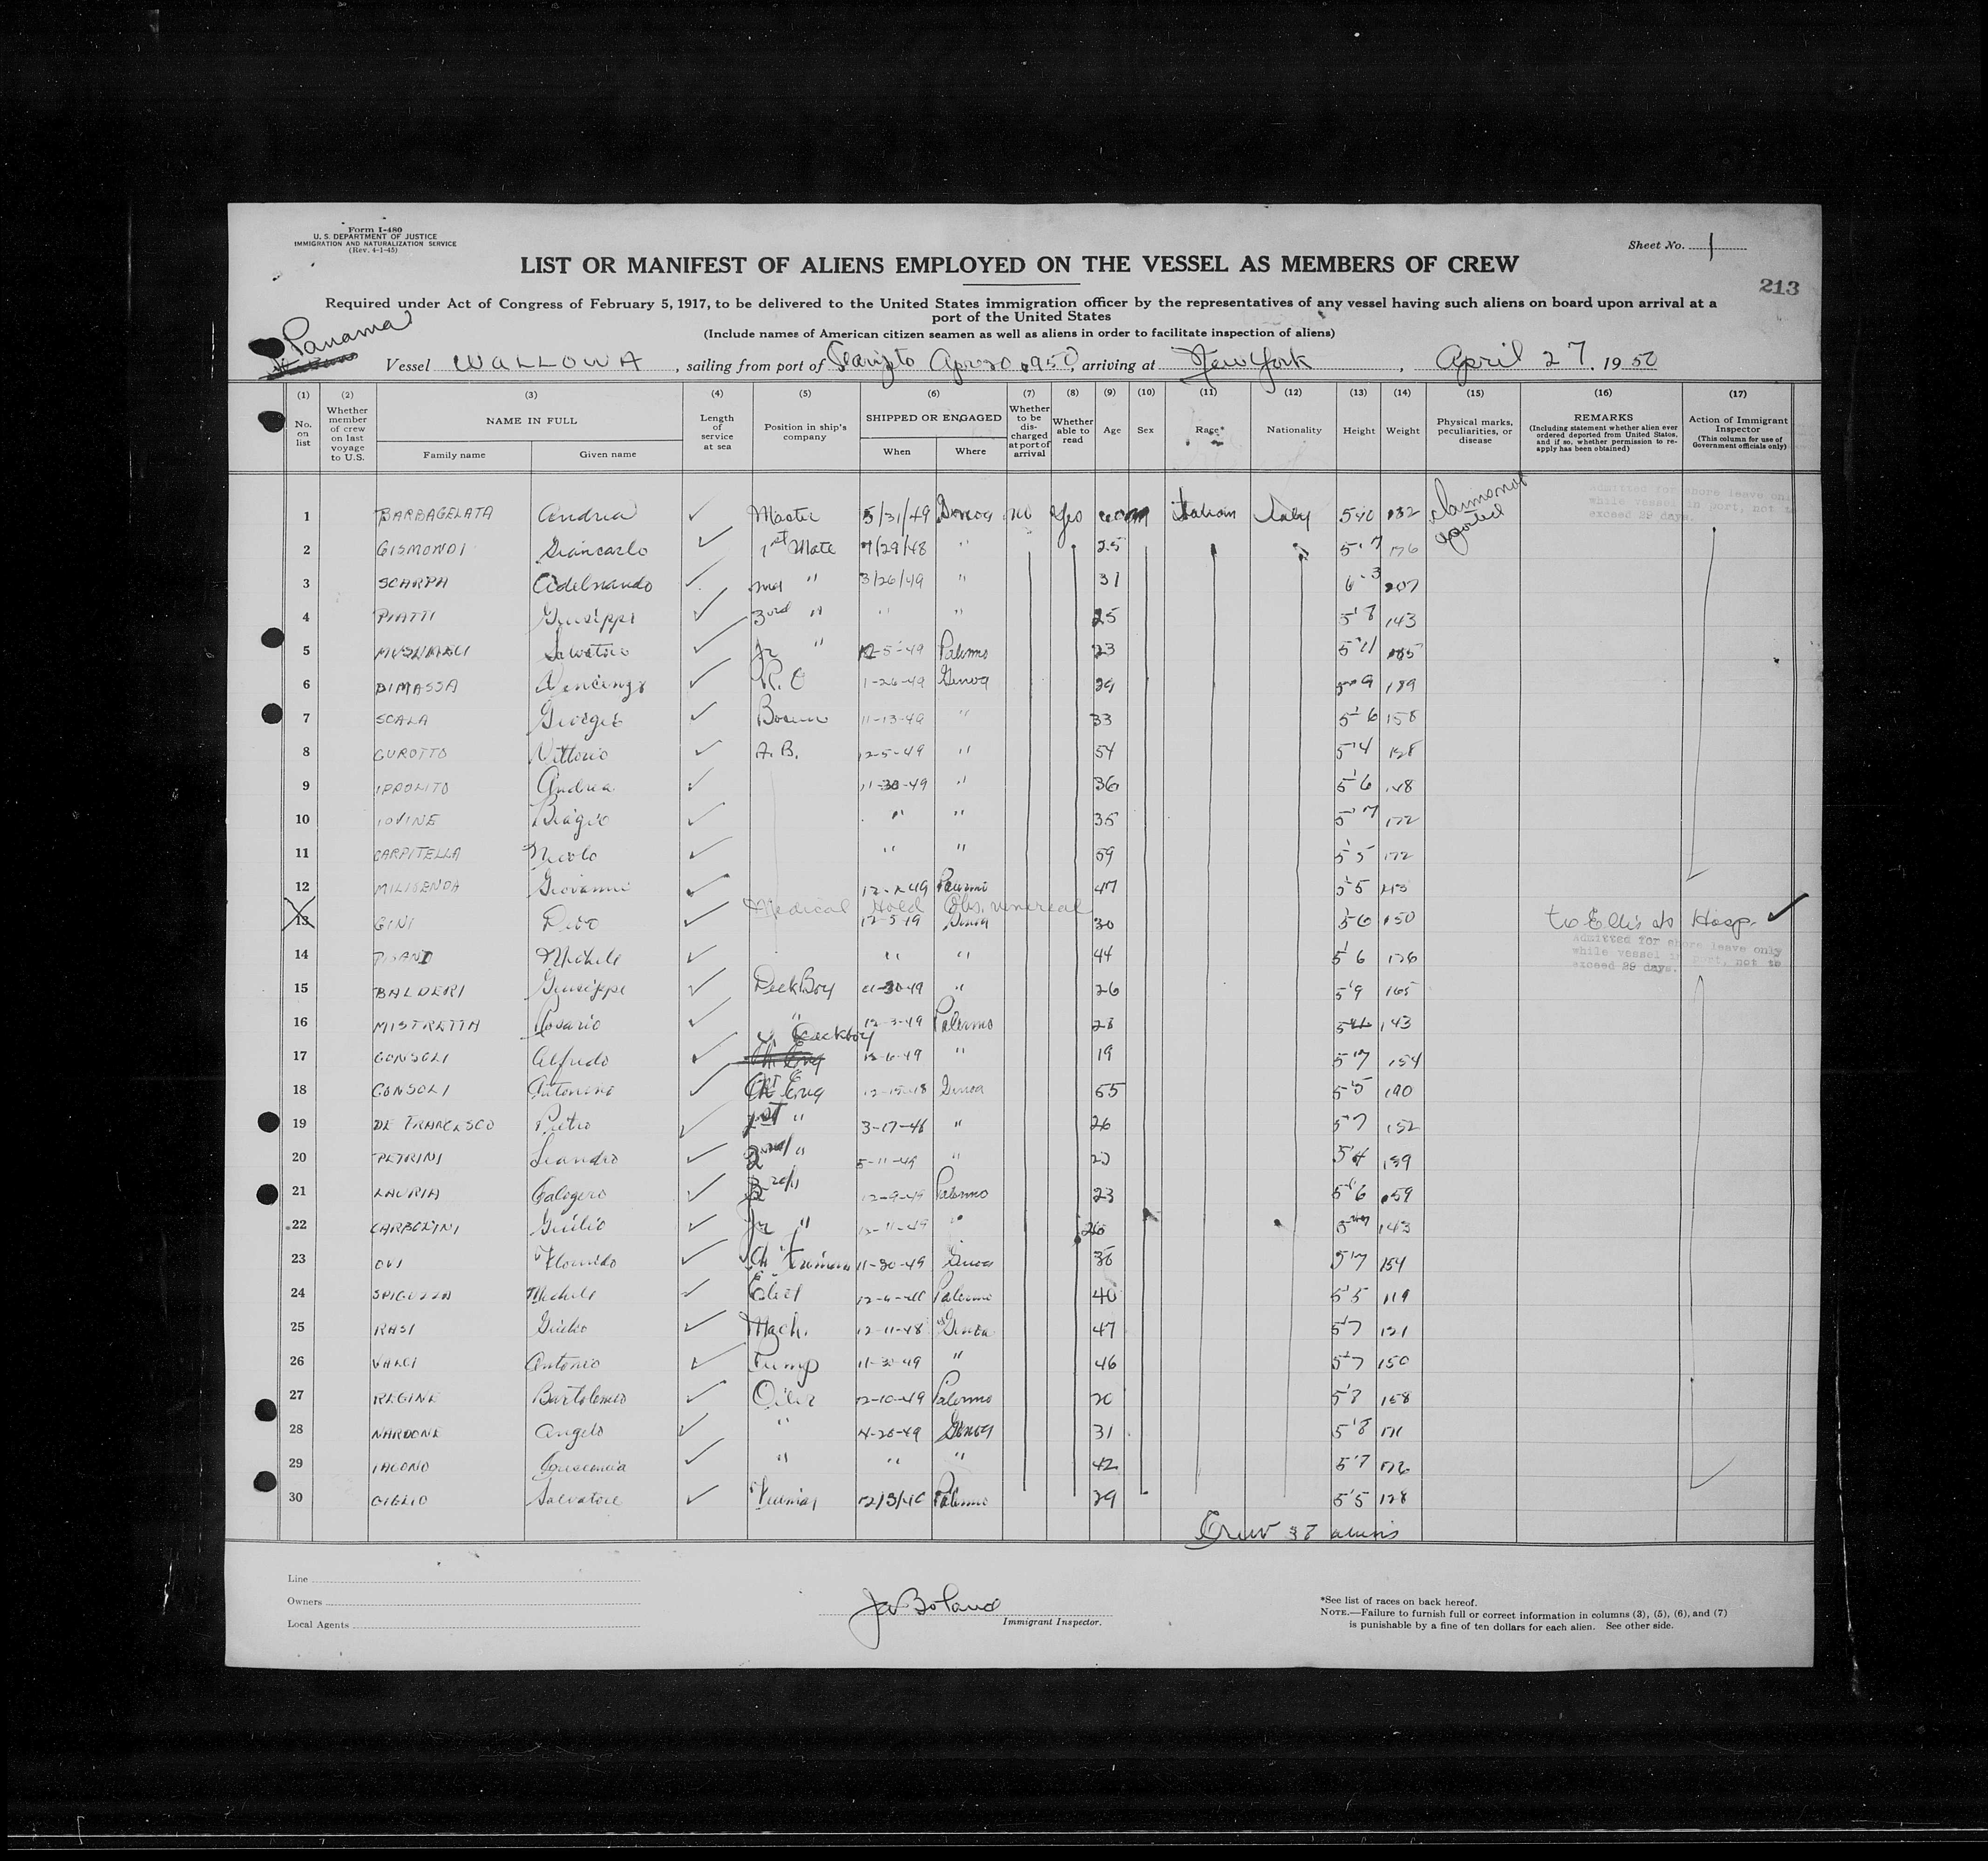 Form I-480
U. S. DEPARTMENT OF JUSTICE
IMMIGRATION AND NATURALIZATION SERVICE
(Rev. 4-1-45)
Sheet No. 1
LIST OR MANIFEST OF ALIENS EMPLOYED ON THE VESSEL AS MEMBERS OF CREW
213
Required under Act of Congress of February 5, 1917, to be delivered to the United States immigration officer by the representatives of any vessel having such aliens on board upon arrival at a
port of the United States
(Include names of American citizen seamen as well as aliens in order to facilitate inspection of aliens)
Panama
Vessel WALLOWA, sailing from port of, arriving at New York, April 27, 1950
(1) (2) (3) (4) (5) (6) (7) (8) (9) (10) (11) (12) (13) (14) (15) (16) (17)
No. on list
Whether member of crew on last voyage to U.S.
NAME IN FULL
Family name Given name
Length of service at sea
Position in ship's company
SHIPPED OR ENGAGED
When Where
Whether to be discharged at port of arrival
Whether able to read
Age
Sex
Race*
Nationality
Height
Weight
Physical marks, peculiarities, or disease
REMARKS
(Including statement whether alien ever ordered deported from United States, and if so, whether permission to reapply has been obtained)
Action of Immigrant Inspector
(This column for use of Government officials only)
Admitted for shore leave only
while vessel in port, not to
exceed 29 days.
1 BARBAGELATA Andrea ✓ Master 5/31/49 Genoa no yes Italian Italy
2 GISMONDI Giancarlo ✓ 1st Mate 7/29/48 " 25 5'7 176
3 SCARPA Adelnando ✓ " 3/26/49 " 31 6-3 207
4 PIATTI Giuseppe ✓ 3rd " " " 25 5'8 143
5 Salvatore ✓ Jr " 12-5-49 Palermo 23 5'11 185
6 DIMASSA Vincenzo ✓ R.O 1-26-49 Genoa 29 189
7 SCALA ✓ Bosun 11-13-49 " 33 5'6 158
8 CUROTTO Vittorio ✓ A.B. 12-5-49 " 54 5'4
9 IPPOLITO Andrea ✓ 11-30-49 " 36 5'6 148
10 IOVINE Biagio ✓ " " 35 5'7 172
11 CARPITELLA Nicolo ✓ " " 59 5'5 172
12 MILISENDA Giovanni ✓ Palermo 47 5'5
Medical Hold Obs. venereal
13 GINI Divo ✓ 12-5-49 Genoa 30 5'6 150 to Ellis Is Hosp. ✓
Admitted for shore leave only
while vessel in port, not to
exceed 29 days.
14 PISANI Michele ✓ " " 44 5'6 176
15 BALDERI Giuseppe ✓ Deck Boy 11-30-49 " 26 5'9 165
16 MISTRETTA Rosario ✓ " 12-3-49 Palermo 28 143
17 CONSOLI Alfredo ✓ deckboy 12-6-49 " 19 5'7 154
18 CONSOLI Antonino ✓ Eng Genoa 55 5'5 190
19 DE FRANCESCO Pietro ✓ 1st " 3-17-46 " 26 5'7 152
20 PETRINI Leandro ✓ 2nd " 5-11-49 " 5'4 139
21 LAURIA Calogero ✓ 12-9-49 Palermo 23 5'6 159
22 CARBOLINI Giulio ✓ Jr " " 26 143
23 ✓ 11-30-49 Genoa 5'7 154
24 Michele ✓ Palermo 40 5'5 119
25 RASI Giulio ✓ Mach. 12-11-48 Genoa 47 5'7 121
26 Antonio ✓ Pump 11-30-49 " 46 5'7 150
27 REGINE Bartolomeo ✓ Oiler 12-10-49 Palermo 20 5'8 158
28 NARDONE Angelo ✓ " 4-26-49 Genoa 31 5'8
29 IACONO ✓ " " " 42 5'7 176
30 GIGLIO Salvatore ✓ Palermo 29 5'5 128
Crew 37 aliens
Line
Owners
Local Agents
JABoland
Immigrant Inspector.
*See list of races on back hereof.
NOTE.—Failure to furnish full or correct information in columns (3), (5), (6), and (7)
is punishable by a fine of ten dollars for each alien. See other side.